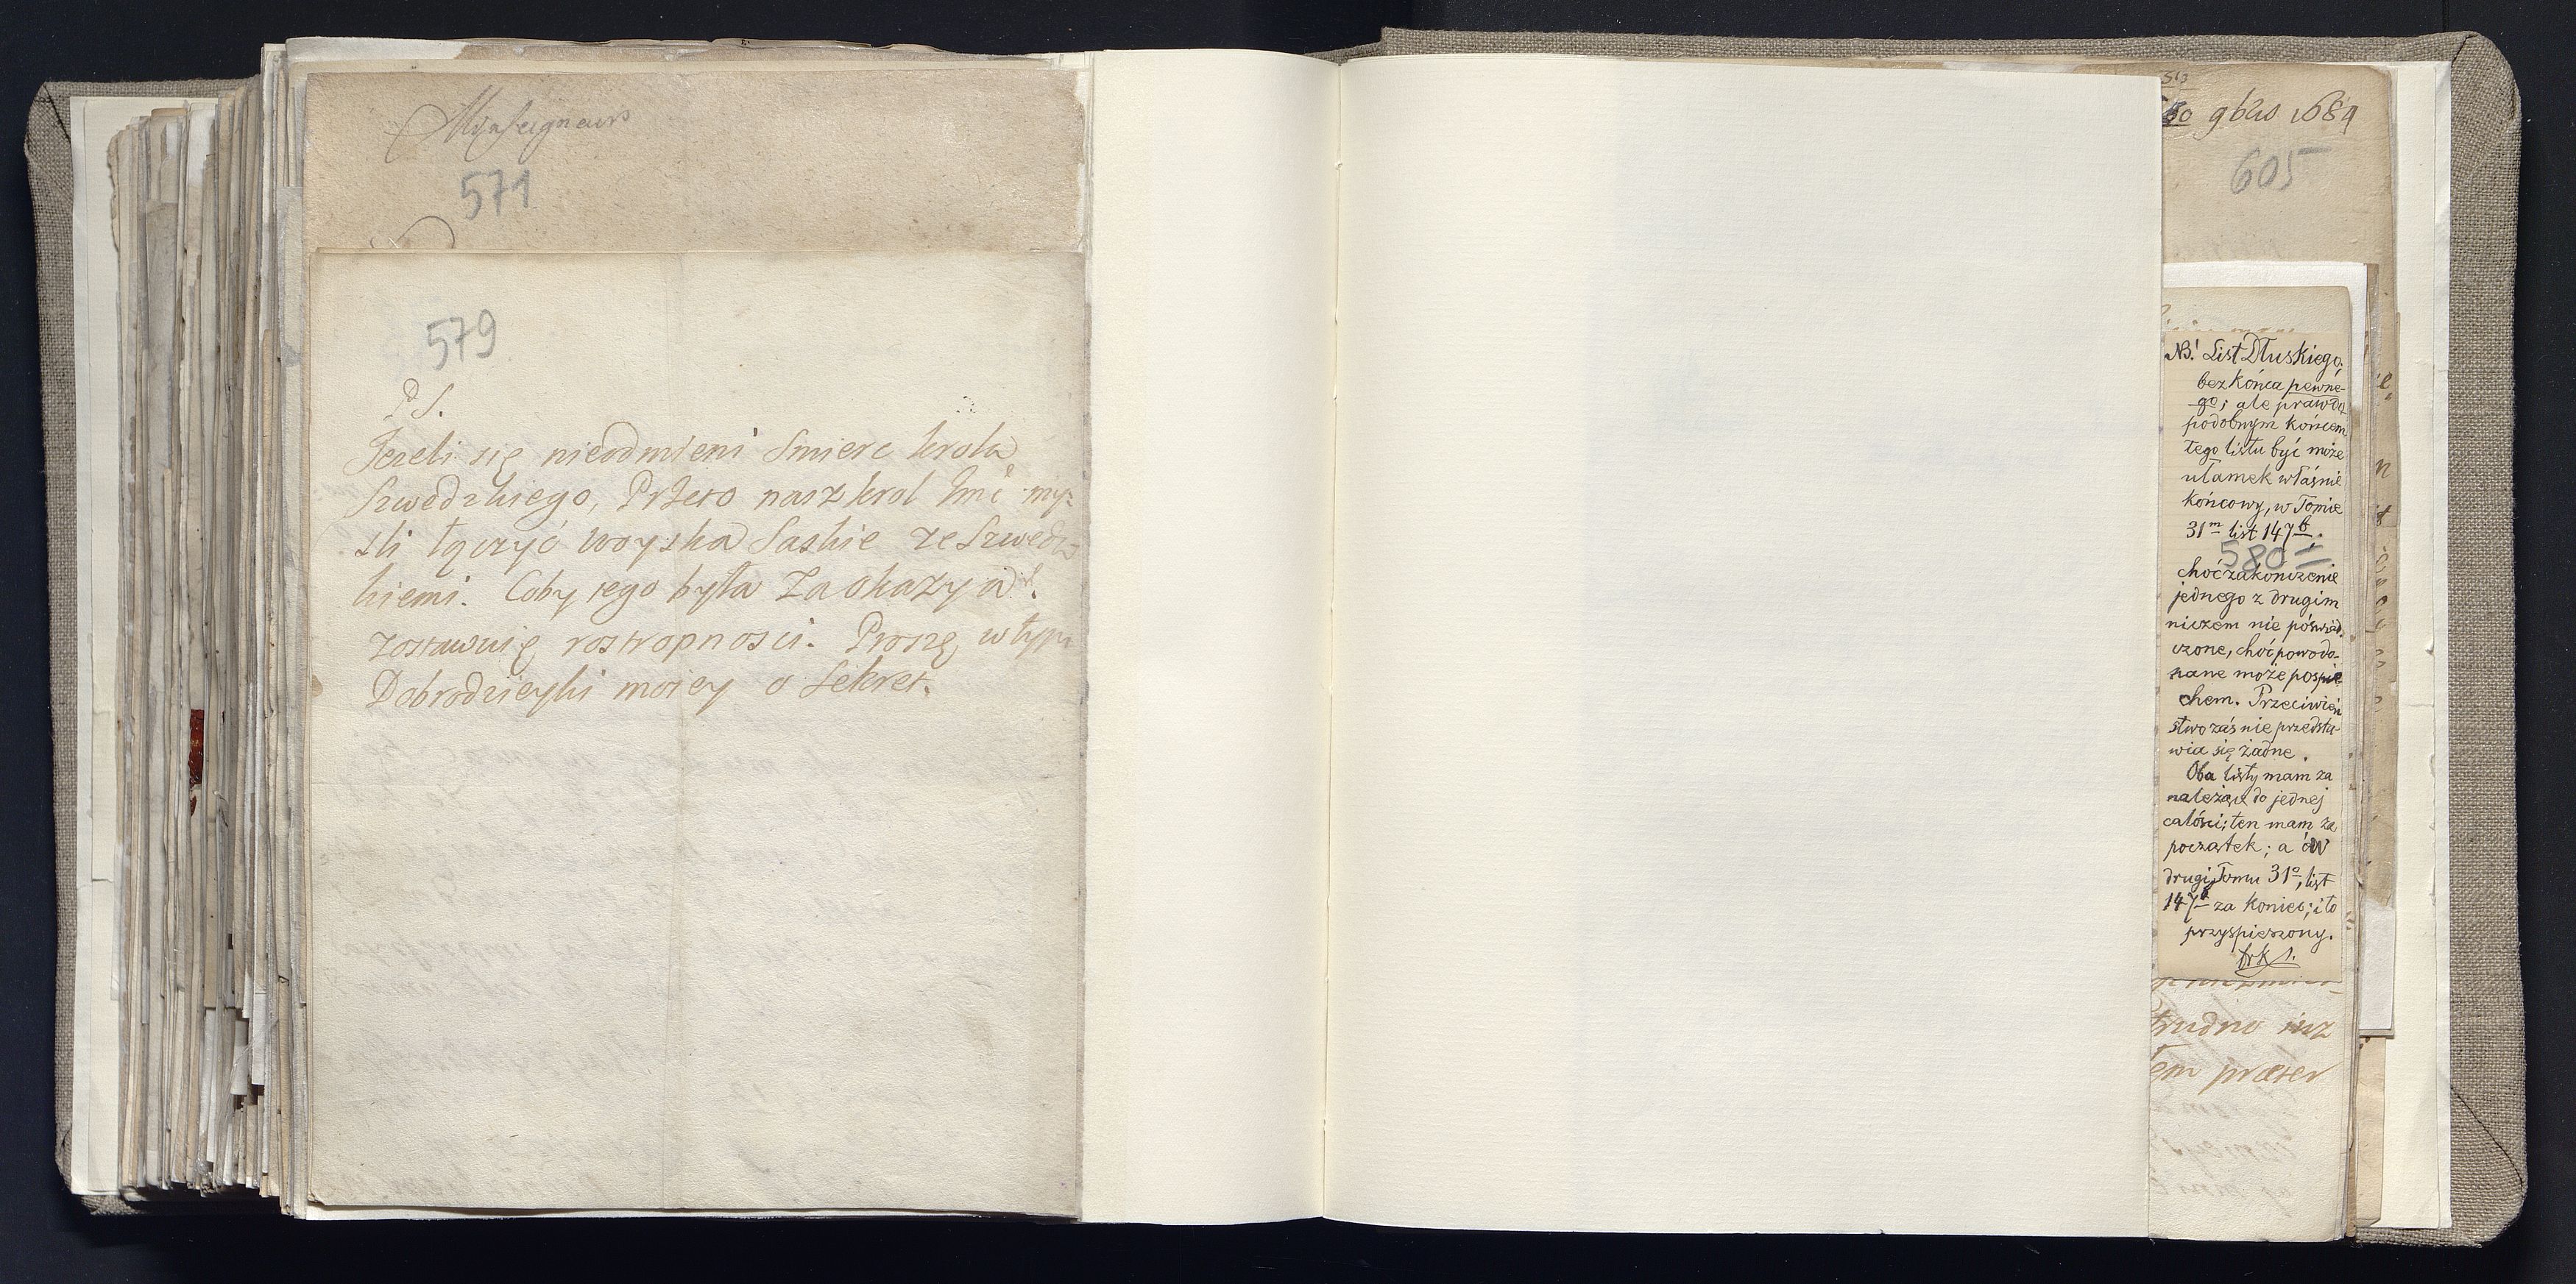 Monseigneur
571
579
PS.
Jezeli się nieodmieni Smierc krola
Szwedzkiego, Przeto nasz krol Jmć my:
sli łączyć woyska Saskie ze Szwedz
kiemi. Coby tego była za okazya
zostawuię rostropnosci. Proszę w tym
Dobrodzieyki moiey o Sekret.
30 9bris 1689
605
NB! List Dłuskiego,
bez końca pewne-
go; ale prawdo-
podobnym końcem
tego listu być może
ułamek właśnie
końcowy, w Tomie
31m list 147b.
580
choć zakończenie
jednego z drugim
niczem nie poświad-
czone, choć powodo-
wane może pośpie-
chem. Przeciwień
stwo zaś nie przedsta-
wia się żadne.
Oba listy mam za
należące do jednej
całości; ten mam za
początek; a ów
drugi Tomu 31o, list
147b za koniec; i to
przyspieszony.
trudno iuz
em præter